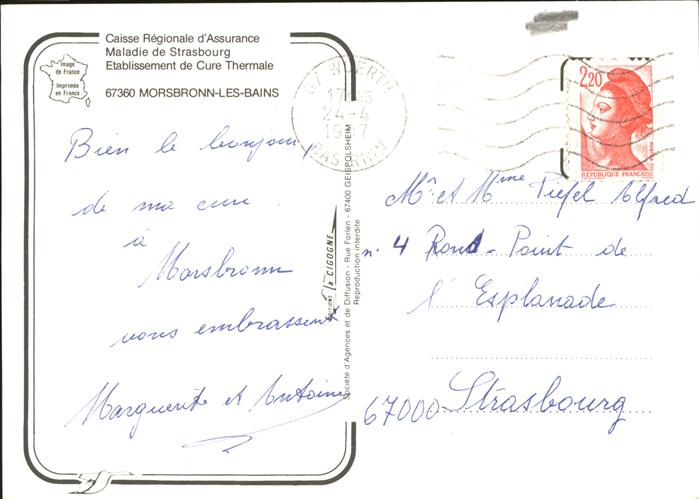 Caisse Régionale d'Assurance
Maladie de Strasbourg
Etablissement de Cure Thermale
67360 MORSBRONN-LES-BAINS
Image
de France
Imprimée
en France
Bien le bonjour,
de ma cure
à
Morsbronn
vous embrassent
Marguerite et Antoine
EDITIONS la CIGOGNE
Société d'Agences et de Diffusion - Rue Forlen - 67400 GEISPOLSHEIM
Reproduction interdite
67 WOERTH
24-4
1987
BAS-RHIN
2,20
REPUBLIQUE FRANÇAISE
Mr et Mme Piefel Alfred
n° 4 Rond-Point de
l'Esplanade
67000 Strasbourg